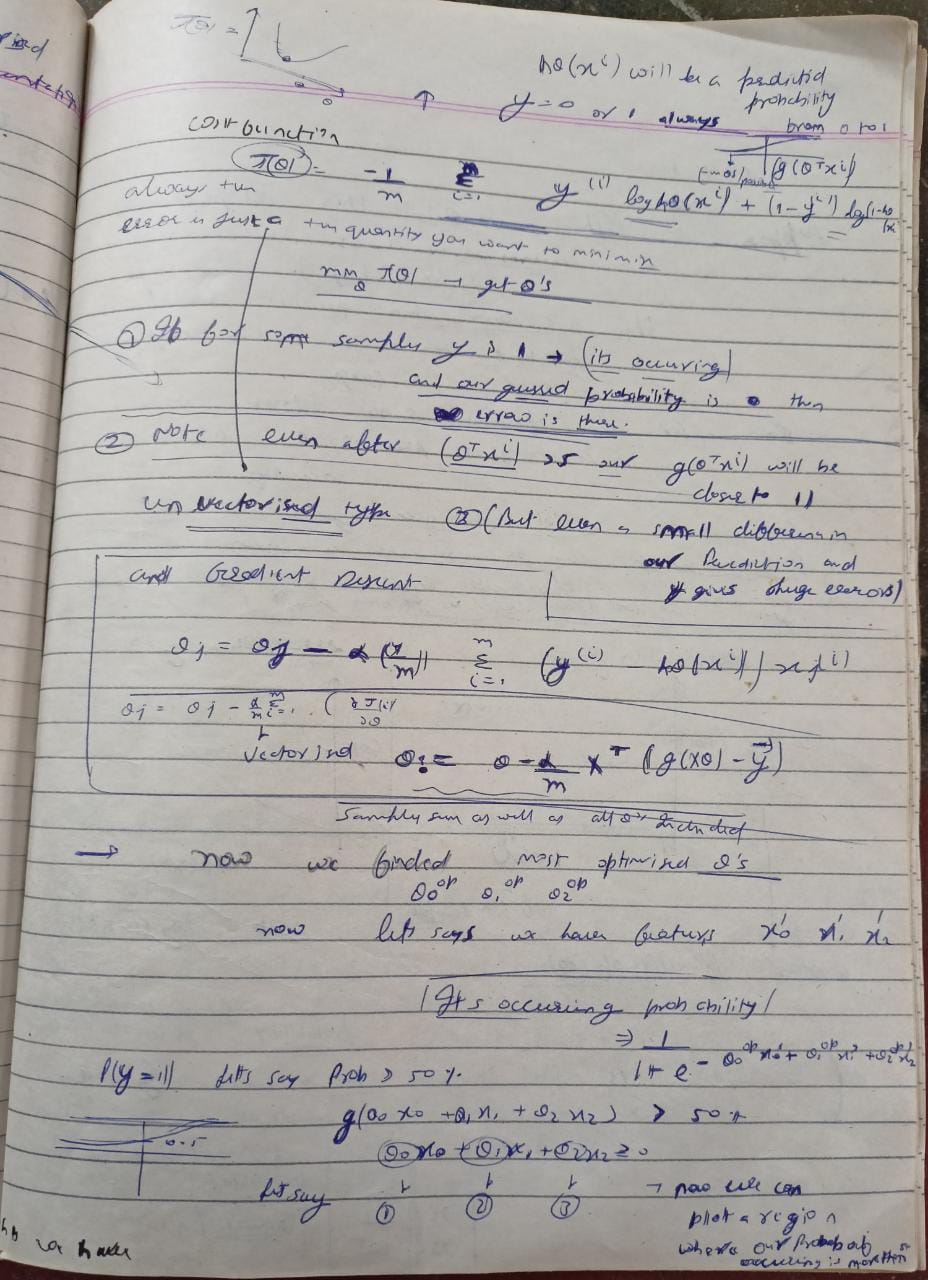 J(θ) =
hθ(x^i) will be a predictid
probability
from 0 to 1
y = 0 or 1 always
cost function
g(θ^T x^i)
J(θ) = -1/m Σ_{i=1}^{m} y^(i) log hθ(x^i) + (1 - y^i) log(1-hθ(x
always +ve
error is just a +ve quantity you want to minimize
min_θ J(θ) → get θ's
① If for some samples y is 1 → (its occuring)
and our guesed probability is 0 then
error is there.
② Note even after (θ^T x^i) > 5 our g(θ^T x^i) will be
close to 1)
un vectorised type ③ (But even a small differencein
our Prediction and
y gives huge errors)
and Gradient Descent
θj = θj - α (1/m) Σ_{i=1}^{m} (y^(i) - hθ(x^i)) xj^(i)
θj = θj - α/m Σ_{i=1}^{m} (∂J(i)/∂θ
vectorised θ := θ - α/m X^T (g(Xθ) - y⃗)
Samples sum as well as all θ's included
→ now we finded most optimised θ's
θ0^op θ1^op θ2^op
now lets says we have features x0' x1' x2'
(Its occuring probability)
⇒ 1/(1 + e^-θ0^op x0' + θ1^op x1' + θ2^op x2'
P(y=1) lets say Prob > 50 %
g(θ0 x0 + θ1 x1 + θ2 x2) > 50 %
0.5
θ0 x0 + θ1 x1 + θ2 x2 ≥ 0
let say ① ② ③ → now we can
plot a region
where our Probab
occuring is more then